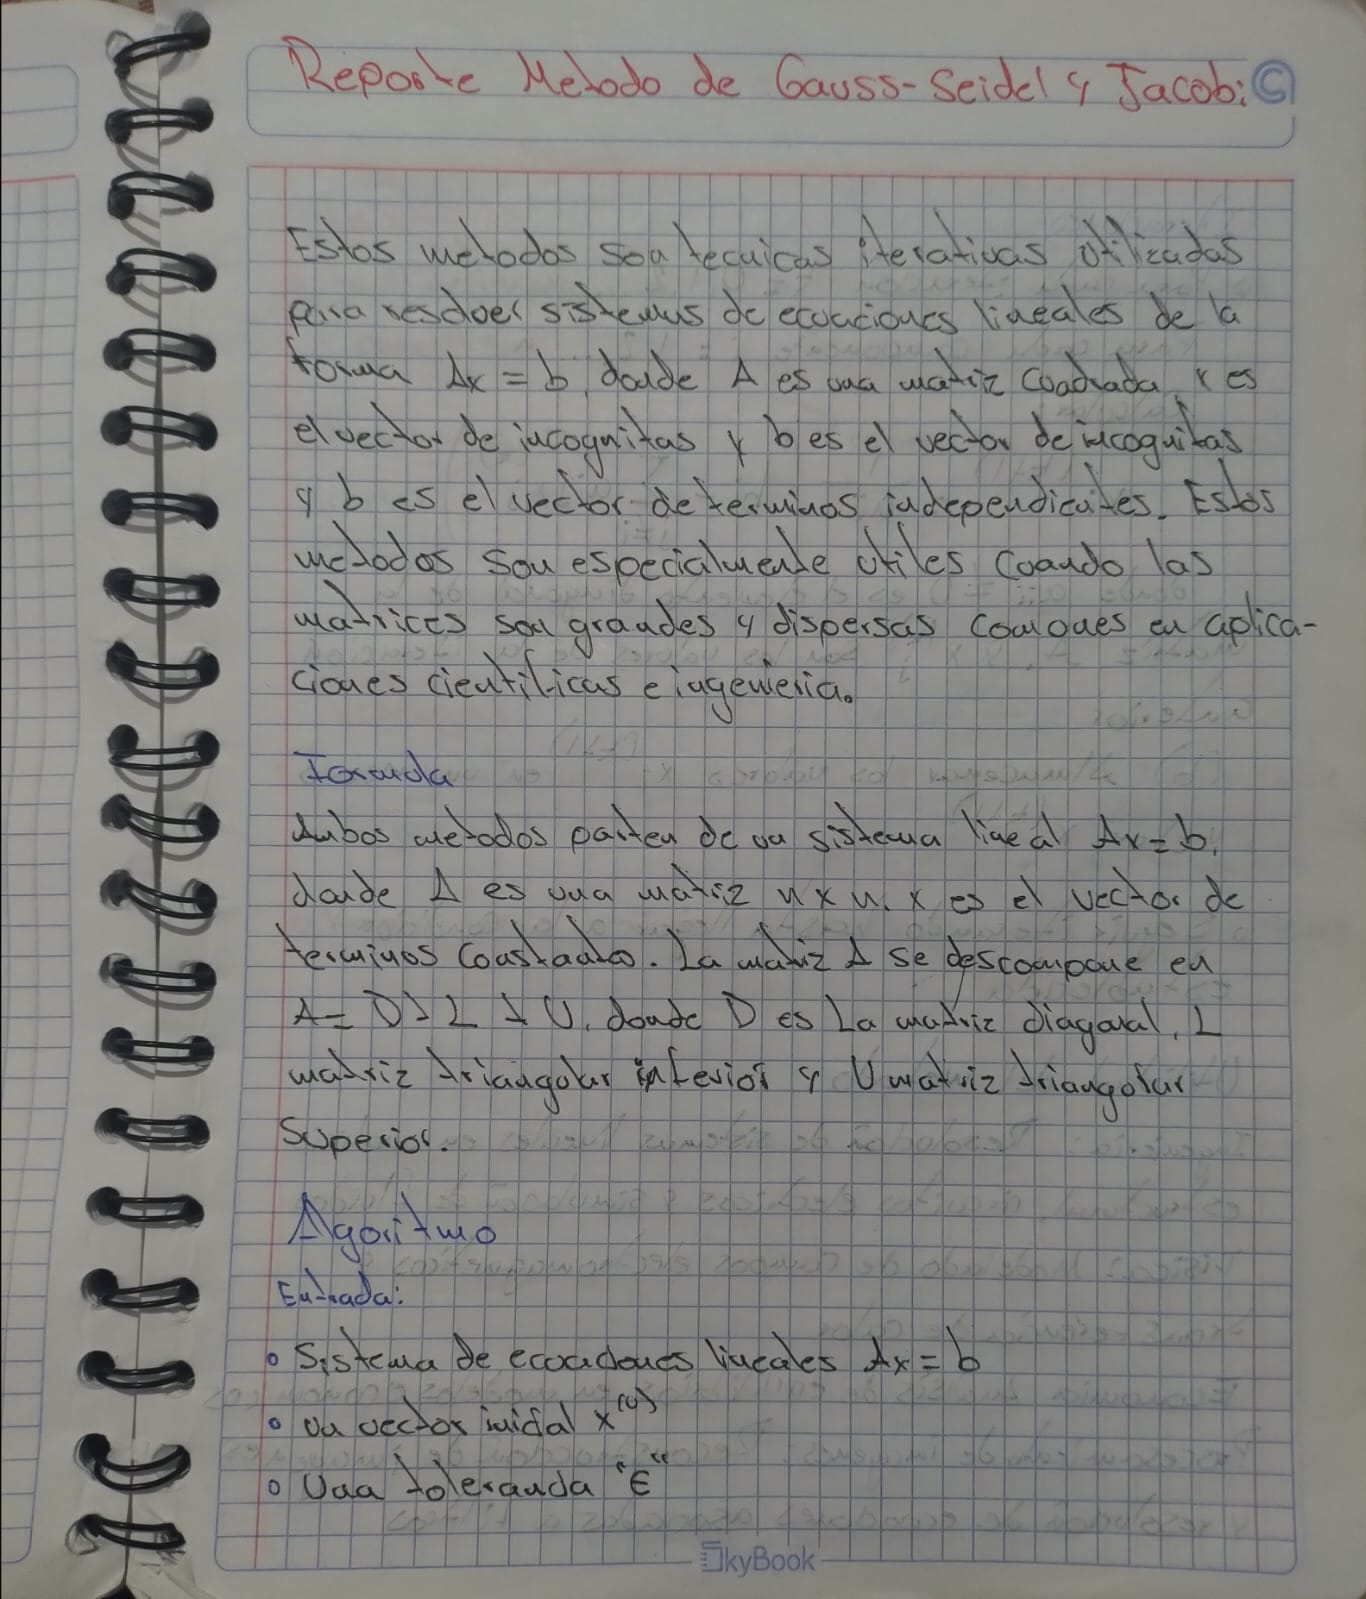 Reporte Metodo de Gauss-Seidel y Jacobi
Estos metodos son tecnicas iterativas utilizadas
para resolver sistemas de ecuaciones lineales de la
forma Ax = b, donde A es una matriz cuadrada, x es
el vector de incognitas y b es el vector de incognitas
y b es el vector de terminos independientes. Estos
metodos son especialmente utiles cuando las
matrices son grandes y dispersas comunes en aplica-
ciones cientificas e ingenieria.
Formula
Ambos metodos parten de un sistema lineal Ax = b,
donde A es una matriz n x n, x es el vector de
terminos constantes. La matriz A se descompone en
A = D + L + U, donde D es La matriz diagonal, L
matriz triangular inferior y U matriz triangular
Superior.
Algoritmo
Entrada:
o Sistema de ecuaciones lineales Ax = b
o un vector inicial x⁽⁰⁾
o Una tolerancia "E"
SkyBook